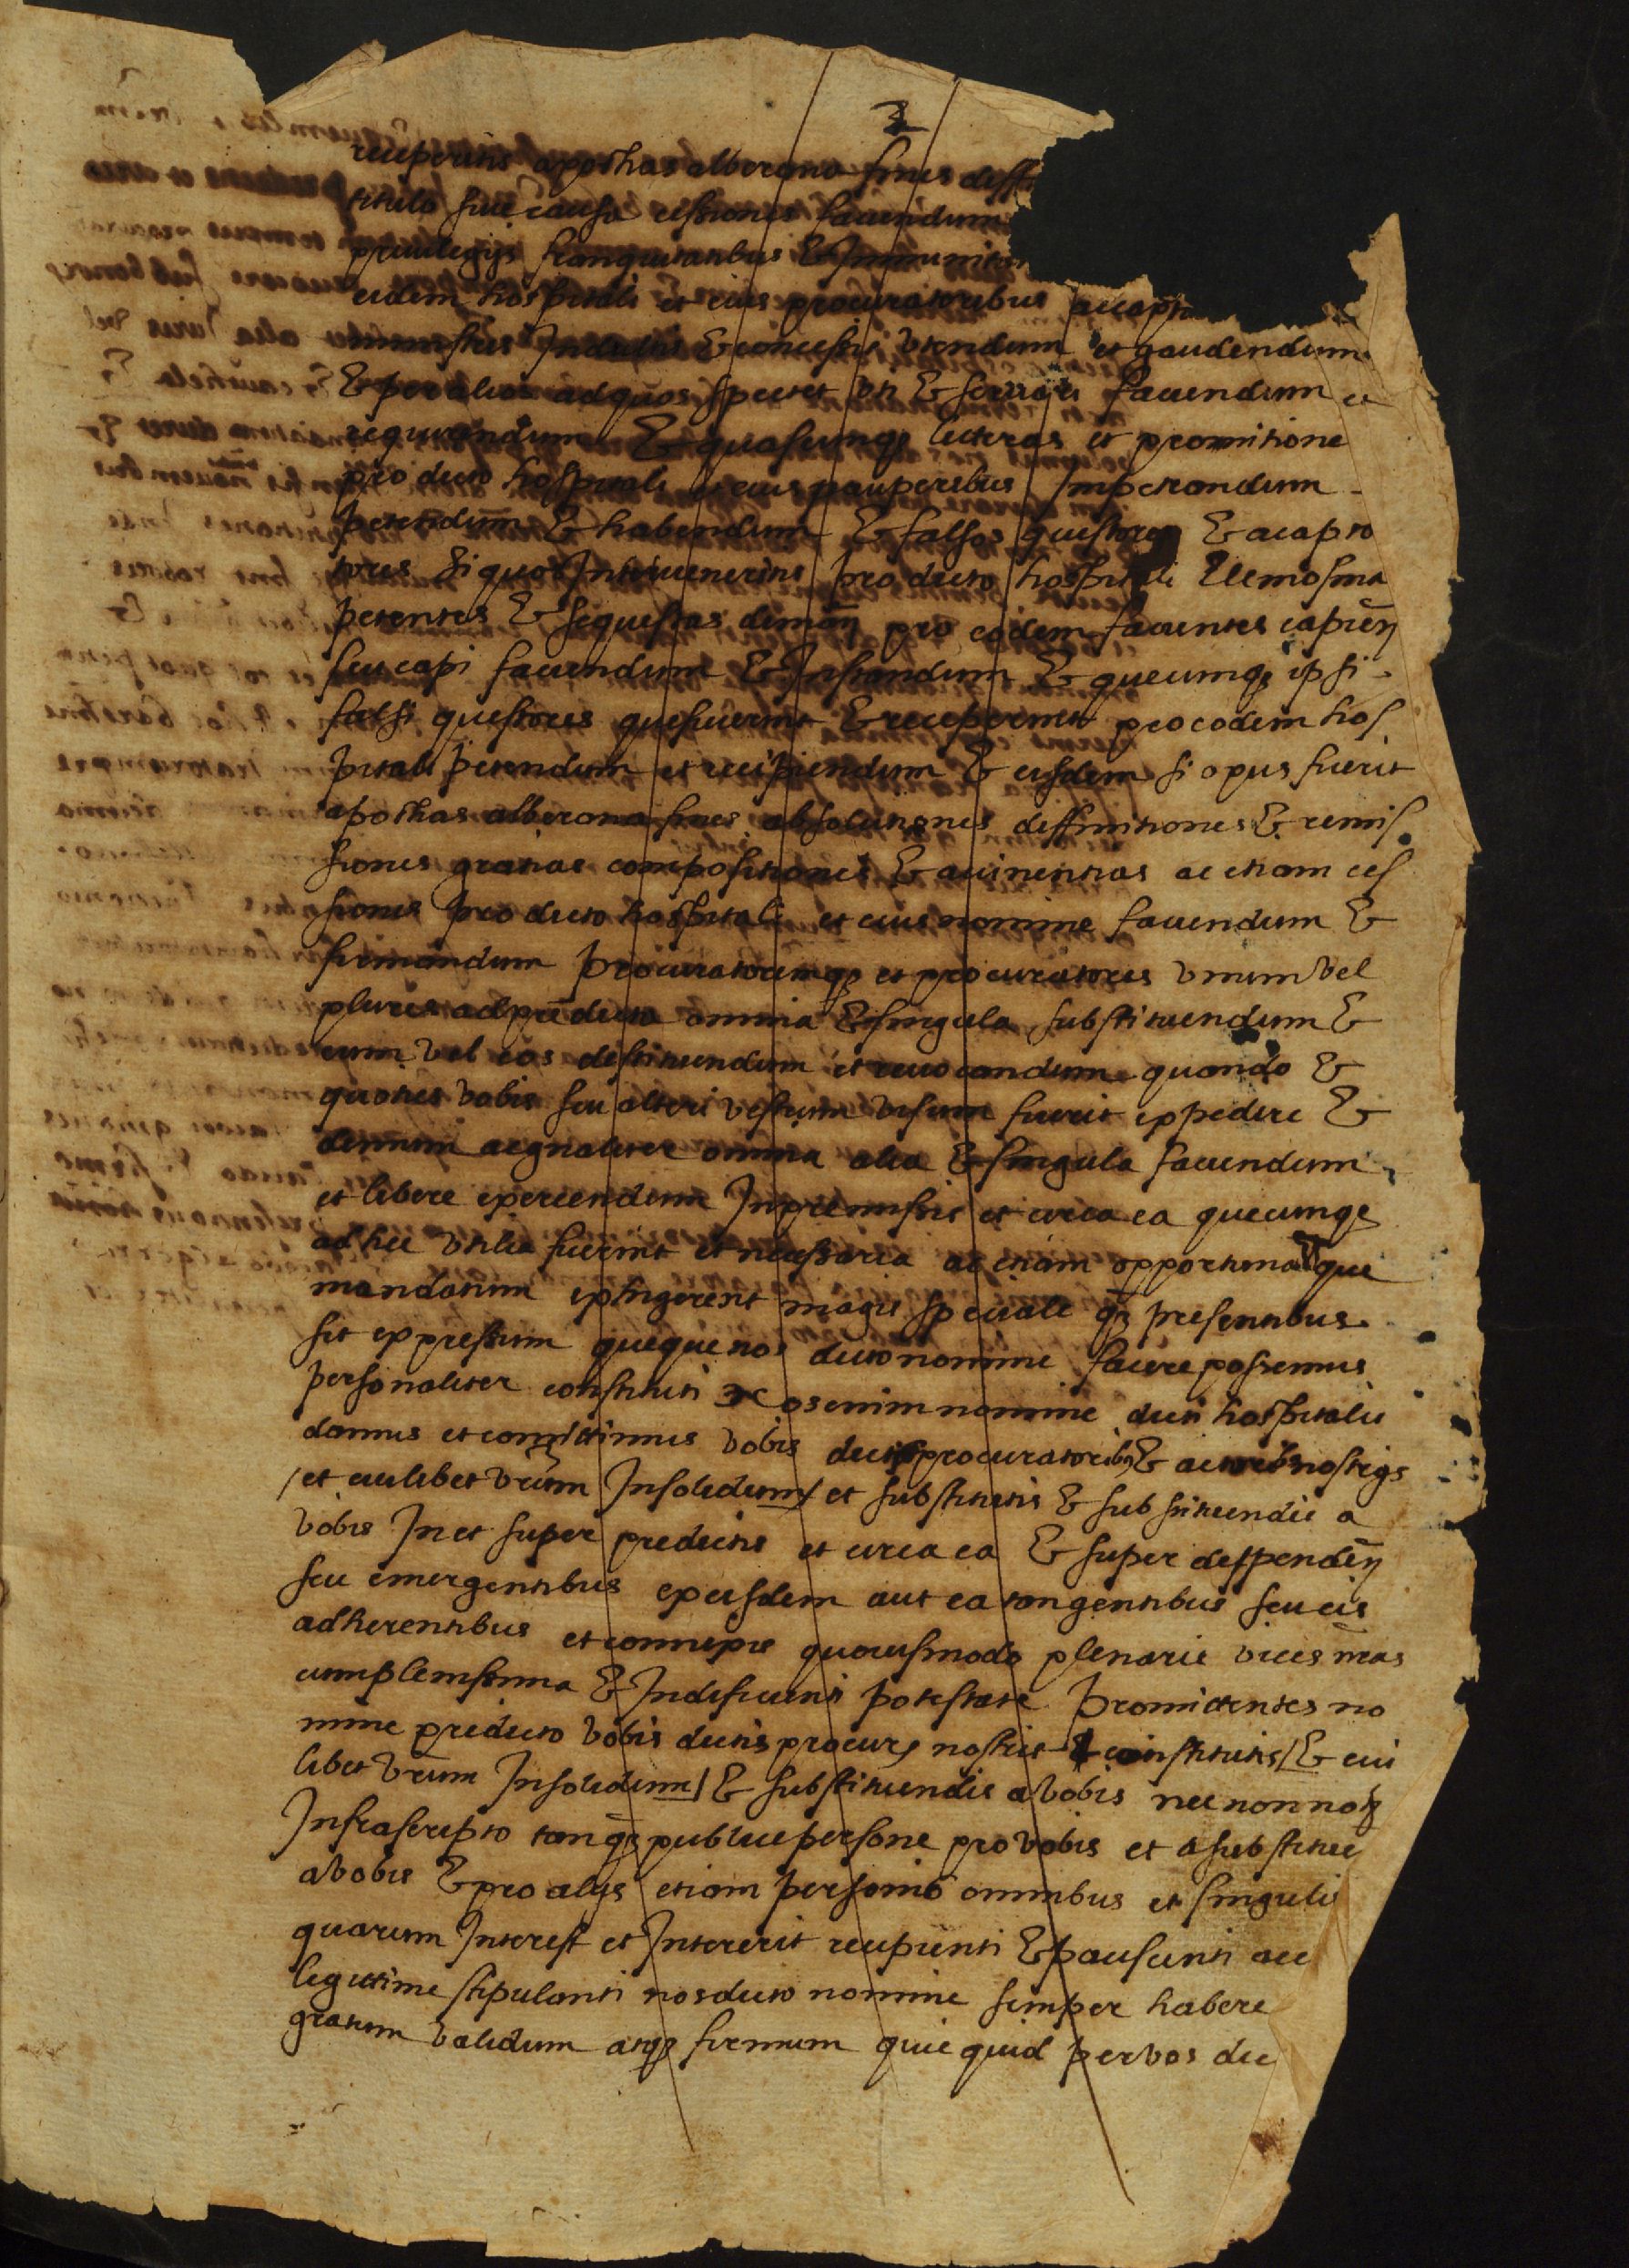 2
receperitis apochas alberana fines diffi
titulo sive causa cessiones faciendum
privilegijs franquitatibus & Immunitat
eidem hospitali et eius procuratoribus acapt
ministris Indultis & concessis Utendum et gaudendum
& per alios ad quos spectet Uti & servari faciendum et
requirendum & quascumq3 litteras et promitione
pro dicto hospitali et eius pauperibus Impetrandum
petendum & habendum & falsos questores & acapta
tores si quos Intervenerint pro dicto hospitali Elemosina
petentes & sequestras demān pro eodem facientes capien
seu capi faciendum & Instandum & quecumq3 ipsi
falsi questores quesiverint & receperint pro eodem hos
pitali petendum et recipiendum & eisdem si opus fuerit
apochas alberana fines absolutiones diffinitiones & remis
siones gratias compositiones & avinentias ac etiam ces
siones pro dicto hospitali et eius nomine faciendum &
firmandum procuratoremq3 et procuratores Unum Vel
plures ad predicta omnia & singula substituendum &
eum Vel eos destituendum et revocandum quando &
quoties Vobis seu alteri Vestrum Visum fuerit expedire &
demum ac gnaliter omnia alia & singula faciendum
et libere exercendum In premissis et circa ea quecumq3
ad hec Utilia fuerint et necessaria ac etiam opportuna Et que
mandatum exhigerent magis speciale q3 presentibus
sit expressum queque nos dicto nomine facere possemus
personaliter constituti Nos enim nomine dicti hospitalis
damus et comittimus Vobis dictis procuratorib3 & actoribus nostris
/et cuilibet Vrūm Insolidum/ et substitutis & substituendis a
Vobis In et super predictis et circa ea & super dependēn
seu emergentibus ex eisdem aut ea tangentibus seu eis
adherentibus et connexis quovismodo plenarie vices nrās
cum plenissima & Indeficienti potestate Promittentes no
mine predicto Vobis dictis procur3 nostris & constitutis/ & cui
libet Vrūm Insolidum/ & substituendis a Vobis necnon not3
Infrascripto tanq3 publice persone pro Vobis et a substitue
a Vobis & pro alijs etiam personis omnibus et singulis
quarum Interest et Intererit recipienti & pasiscenti ac
legittime stipulanti nos dicto nomine semper habere
gratum Validum atq3 firmum quicquid per Vos dic